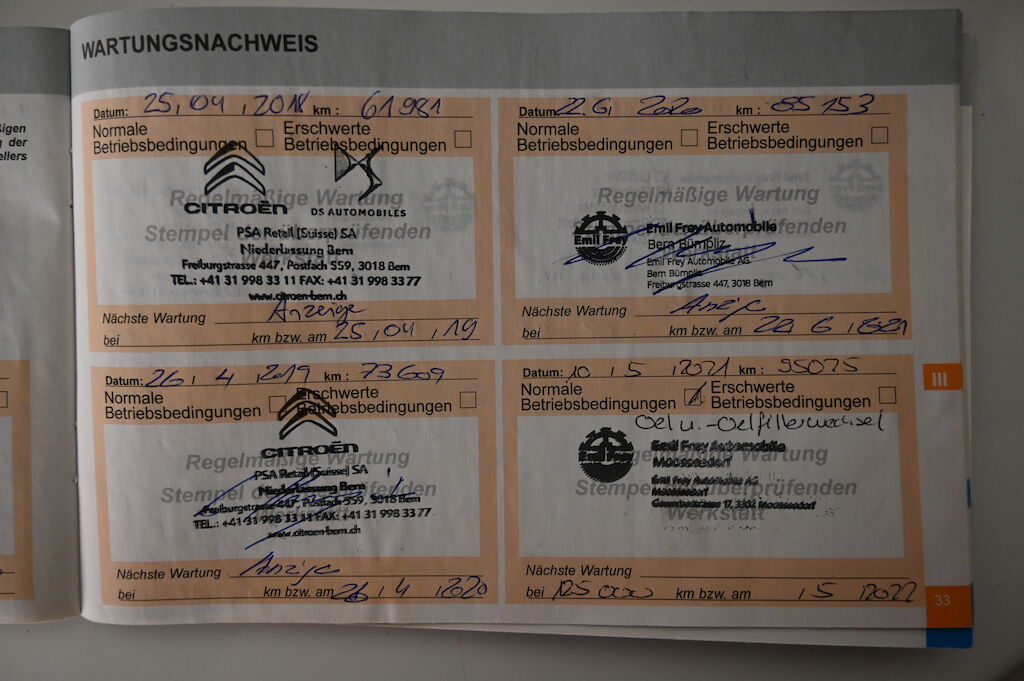 WARTUNGSNACHWEIS
ßigen
g der
ellers
Datum: 25, 04, 2018 km: 61981
Normale Betriebsbedingungen
Erschwerte Betriebsbedingungen
Regelmäßige Wartung
CITROËN
DS AUTOMOBILES
PSA Retail (Suisse) SA
Niederlassung Bern
Freiburgstrasse 447, Postfach 559, 3018 Bern
TEL.: +41 31 998 33 11 FAX: +41 31 998 33 77
www.citroen-bern.ch
Nächste Wartung Anzeige
bei km bzw. am 25, 04, 19
Datum: 22.6, 2020 km: 85 153
Normale Betriebsbedingungen
Erschwerte Betriebsbedingungen
Regelmäßige Wartung
Stempel der überprüfenden
Emil Frey
Emil Frey Automobile
Bern Bümpliz
Emil Frey Automobile AG
Bern Bümpliz
Freiburgstrasse 447, 3018 Bern
Nächste Wartung Anzeige
bei km bzw. am 22, 6,
Datum: 26, 4, 2019 km: 73609
Normale Betriebsbedingungen
Erschwerte Betriebsbedingungen
Regelmäßige Wartung
CITROËN
PSA Retail (Suisse) SA
Niederlassung Bern
Freiburgstrasse 447, Postfach 559, 3018 Bern
TEL.: +41 31 998 33 11 FAX: +41 31 998 33 77
www.citroen-bern.ch
Nächste Wartung Anzeige
bei km bzw. am 26, 4, 2020
Datum: 10, 5, 2021 km: 95075
Normale Betriebsbedingungen
Erschwerte Betriebsbedingungen
Oel u.-Oelfilterwechsel
Regelmäßige Wartung
Stempel der überprüfenden
Werkstatt
Emil Frey
Emil Frey Automobile
Moosseedorf
Emil Frey Automobile AG
Moosseedorf
17, 3302 Moosseedorf
Nächste Wartung
bei 125000 km bzw. am , 5, 2022
III
33